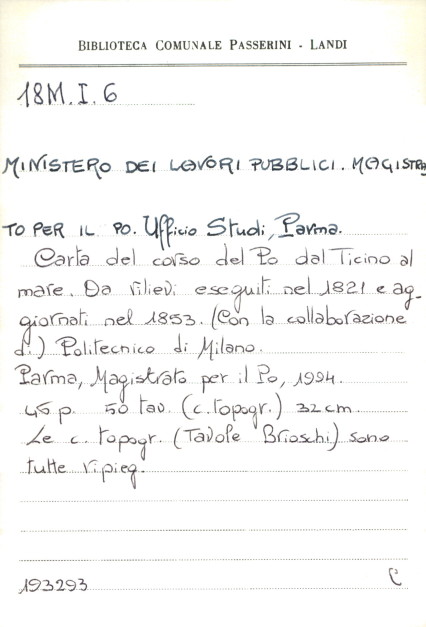 BIBLIOTECA COMUNALE PASSERINI - LANDI
18M.I.6
MINISTERO DEI LAVORI PUBBLICI. MAGISTRA
TO PER IL PO. Ufficio Studi, Parma.
Carta del corso del Po dal Ticino al
mare. Da rilievi eseguiti nel 1821 e ag-
giornati nel 1853. (Con la collaborazione
di) Politecnico di Milano.
Parma, Magistrato per il Po, 1994.
45 p. 50 tav. (c. topogr.) 32 cm.
Le c. topogr. (Tavole Brioschi) sono
tutte ripieg.
193293